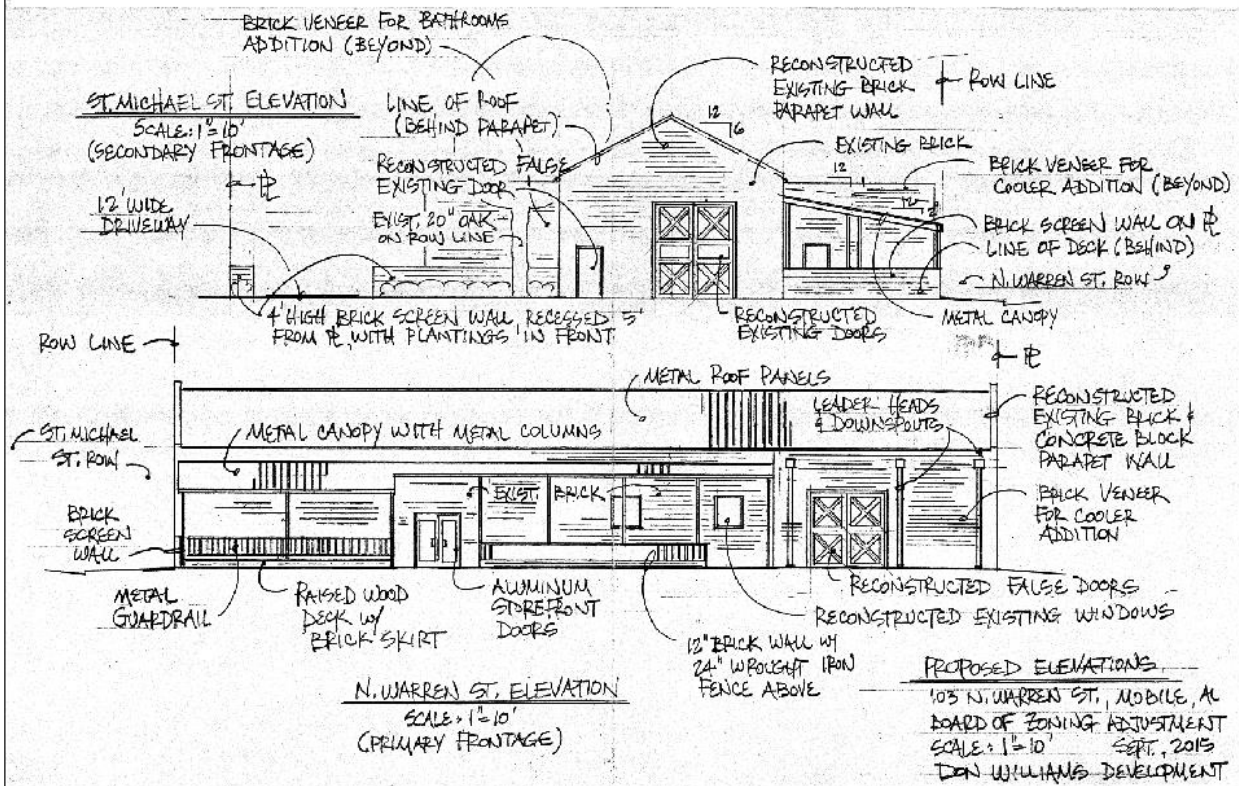 BRICK VENEER FOR BATHROOMS
ADDITION (BEYOND)
ST. MICHAEL ST. ELEVATION
SCALE: 1"=10'
(SECONDARY FRONTAGE)
LINE OF ROOF
(BEHIND PARAPET)
RECONSTRUCTED
EXISTING BRICK
PARAPET WALL
ROW LINE
12
6
EXISTING BRICK
RECONSTRUCTED FALSE
EXISTING DOOR
12
BRICK VENEER FOR
COOLER ADDITION (BEYOND)
PL
12' WIDE
DRIVEWAY
EXIST. 20" OAK
ON ROW LINE
12
2
BRICK SCREEN WALL ON PL
LINE OF DECK (BEHIND)
N. WARREN ST. ROW
METAL CANOPY
4' HIGH BRICK SCREEN WALL RECESSED 5'
FROM PL, WITH PLANTINGS IN FRONT
RECONSTRUCTED
EXISTING DOORS
ROW LINE
PL
METAL ROOF PANELS
LEADER HEADS
& DOWNSPOUTS
RECONSTRUCTED
EXISTING BRICK &
CONCRETE BLOCK
PARAPET WALL
ST. MICHAEL
ST. ROW
METAL CANOPY WITH METAL COLUMNS
EXIST. BRICK
BRICK VENEER
FOR COOLER
ADDITION
BRICK
SCREEN
WALL
METAL
GUARDRAIL
RAISED WOOD
DECK W/
BRICK SKIRT
ALUMINUM
STOREFRONT
DOORS
RECONSTRUCTED FALSE DOORS
RECONSTRUCTED EXISTING WINDOWS
12" BRICK WALL W/
24" WROUGHT IRON
FENCE ABOVE
N. WARREN ST. ELEVATION
SCALE: 1"=10'
(PRIMARY FRONTAGE)
PROPOSED ELEVATIONS
103 N. WARREN ST., MOBILE, AL
BOARD OF ZONING ADJUSTMENT
SCALE: 1"=10' SEPT., 2015
DON WILLIAMS DEVELOPMENT